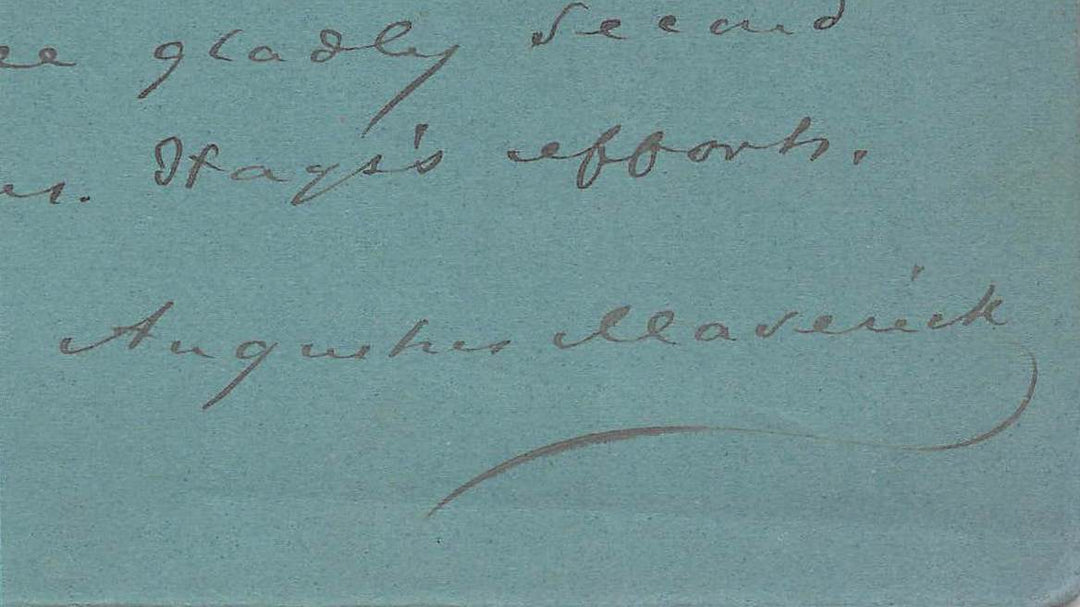 gladly second
Hays's efforts.
Augustus Maverick